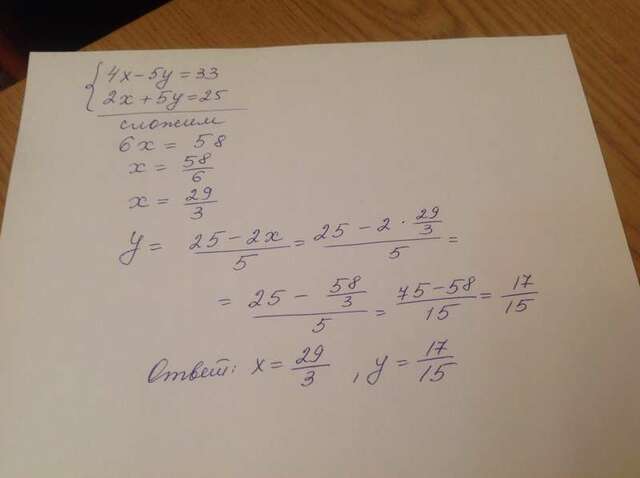 4x-5y=33
2x+5y=25
сложим
6x = 58
x = 58/6
x = 29/3
y = (25-2x)/5 = (25-2·29/3)/5 =
= (25 - 58/3)/5 = (75-58)/15 = 17/15
Ответ: x = 29/3 , y = 17/15